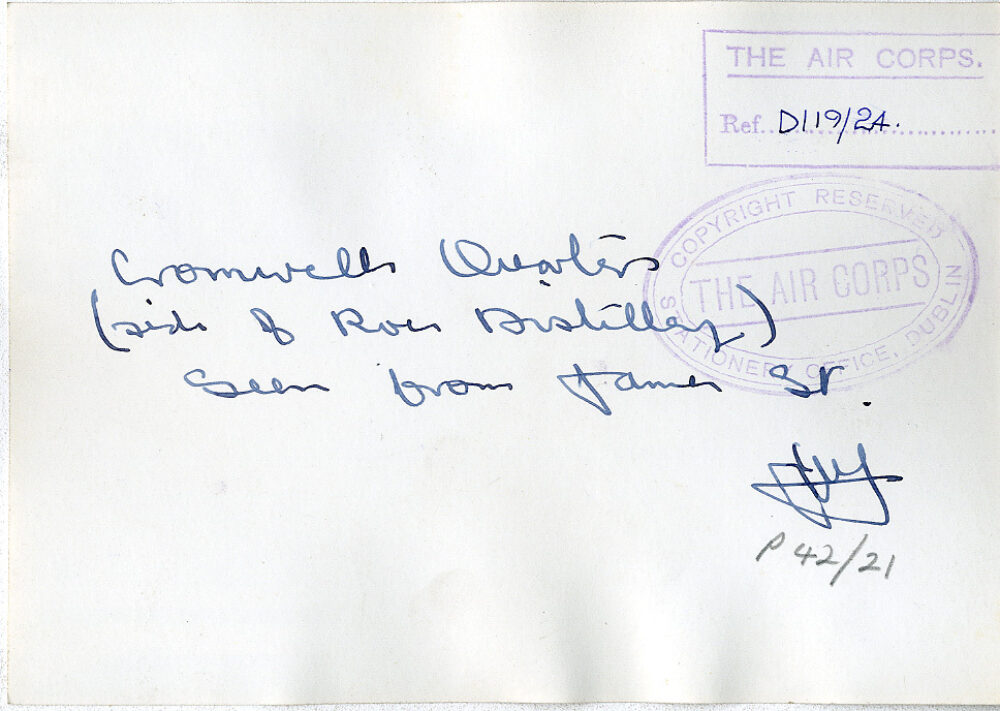 THE AIR CORPS.
Ref. D119/2A.
COPYRIGHT RESERVED
THE AIR CORPS
STATIONERY OFFICE, DUBLIN
Cromwells Quarters
(side of Roes Distillery)
Seen from James St.
P 42/21